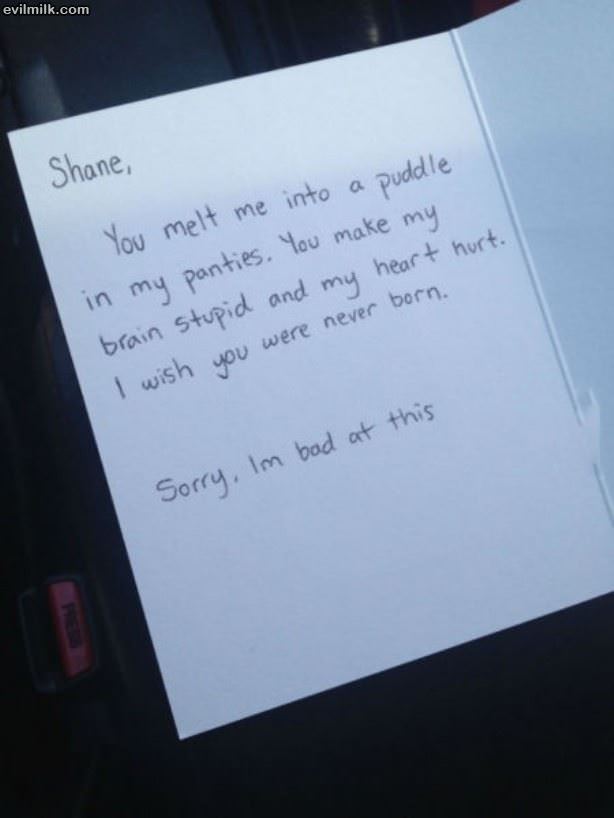 evilmilk.com
Shane,
You melt me into a puddle
in my panties. You make my
brain stupid and my heart hurt.
I wish you were never born.
Sorry, Im bad at this
PRESS